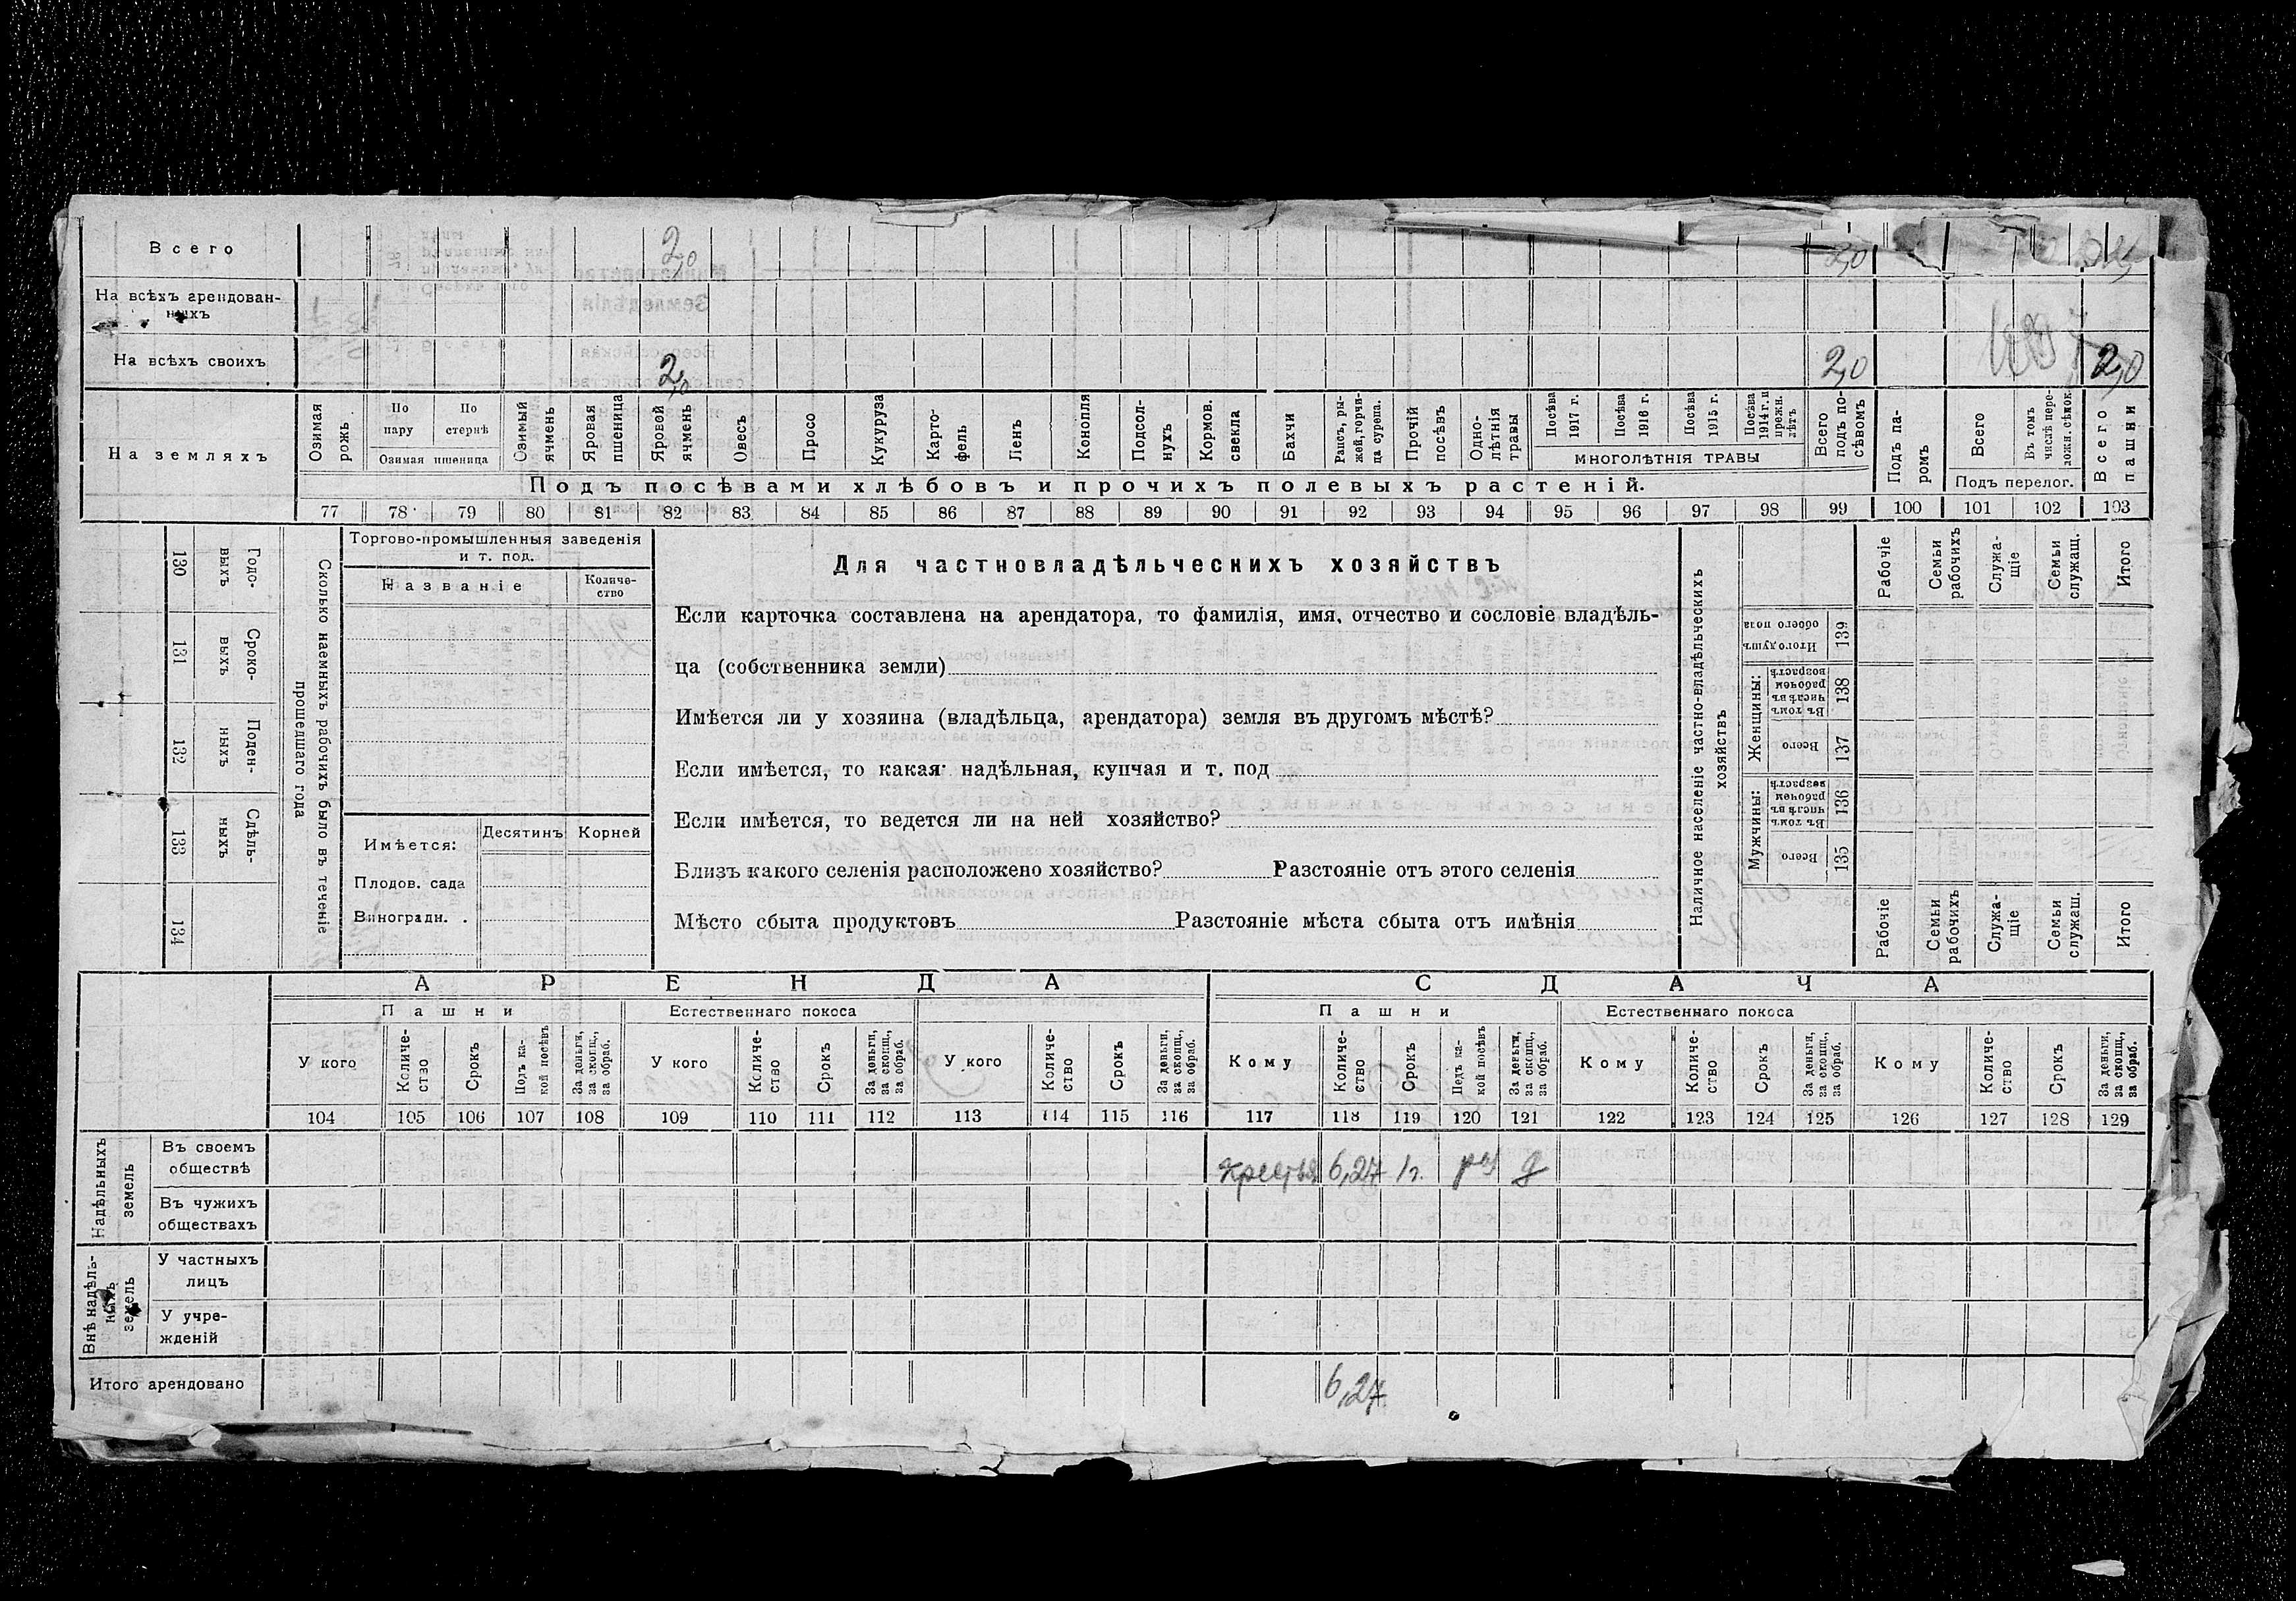 Всего 2,0 2,0
На всѣхъ арендован-
ныхъ
На всѣхъ своихъ 2,0 2,0 2,0
На земляхъ
Озимая рожь
По пару
По стернѣ
Озимая пшеница
Озимый ячмень
Яровая пшеница
Яровой ячмень
Овесъ
Просо
Кукуруза
Карто-
фель
Ленъ
Конопля
Подсол-
нухъ
Кормов.
свекла
Бахчи
Рапсъ, ры-
жей, горчи-
ца сурепа.
Прочій
посѣвъ
Одно-
лѣтнія
травы
Посѣва
1917 г.
Посѣва
1916 г.
Посѣва
1915 г.
Посѣва
1914 г. и
прежн.
лѣтъ
МНОГОЛѢТНІЯ ТРАВЫ
Всего
подъ по-
сѣвомъ
Подъ па-
ромъ
Всего
Въ томъ
числѣ пере-
ложн. сѣнок.
Подъ перелог.
Всего
пашни
Подъ посѣвами хлѣбовъ и прочихъ полевыхъ растеній.
77 78 79 80 81 82 83 84 85 86 87 88 89 90 91 92 93 94 95 96 97 98 99 100 101 102 103
130 Годо-
выхъ
131 Сроко-
выхъ
132 Поден-
ныхъ
133 Сдѣль-
ныхъ
134
Сколько наемныхъ рабочихъ было въ теченіе
прошедшаго года
Торгово-промышленныя заведенія
и т. под.
Названіе
Количе-
ство
Имѣется:
Десятинъ Корней
Плодов. сада
Виноградн. .
Для частновладѣльческихъ хозяйствъ
Если карточка составлена на арендатора, то фамилія, имя, отчество и сословіе владѣль-
ца (собственника земли)
Имѣется ли у хозяина (владѣльца, арендатора) земля въ другомъ мѣстѣ?
Если имѣется, то какая надѣльная, купчая и т. под
Если имѣется, то ведется ли на ней хозяйство?
Близъ какого селенія расположено хозяйство? Разстояніе отъ этого селенія
Мѣсто сбыта продуктовъ Разстояніе мѣста сбыта отъ имѣнія
Наличное населеніе частно-владѣльческихъ
хозяйствъ
Рабочіе
Семьи
рабочихъ
Служа-
щіе
Семьи
служащ.
Итого
Итого душъ
обоего пола
139
Женщины:
Въ томъ
числѣ въ
рабочемъ
возрастѣ
138
Всего
137
Мужчины:
Въ томъ
числѣ въ
рабочемъ
возрастѣ
136
Всего
135
Рабочіе
Семьи
рабочихъ
Служа-
щіе
Семьи
служащ.
Итого
АРЕНДА СДАЧА
Пашни Естественнаго покоса Пашни Естественнаго покоса
У кого
Количе-
ство
Срокъ
Подъ ка-
кой посѣвъ
За деньги,
за скопщ.,
за обраб.
У кого
Количе-
ство
Срокъ
За деньги,
за скопщ.,
за обраб.
У кого
Количе-
ство
Срокъ
За деньги,
за скопщ.,
за обраб.
Кому
Количе-
ство
Срокъ
Подъ ка-
кой посѣвъ
За деньги,
за скопщ.,
за обраб.
Кому
Количе-
ство
Срокъ
За деньги,
за скопщ.,
за обраб.
Кому
Количе-
ство
Срокъ
За деньги,
за скопщ.,
за обраб.
104 105 106 107 108 109 110 111 112 113 114 115 116 117 118 119 120 121 122 123 124 125 126 127 128 129
Надѣльныхъ
земель
Въ своемъ
обществѣ
6,27 1г. д
Въ чужихъ
обществахъ
Внѣ надѣль-
ныхъ
земель
У частныхъ
лицъ
У учре-
жденій
Итого арендовано 6,27